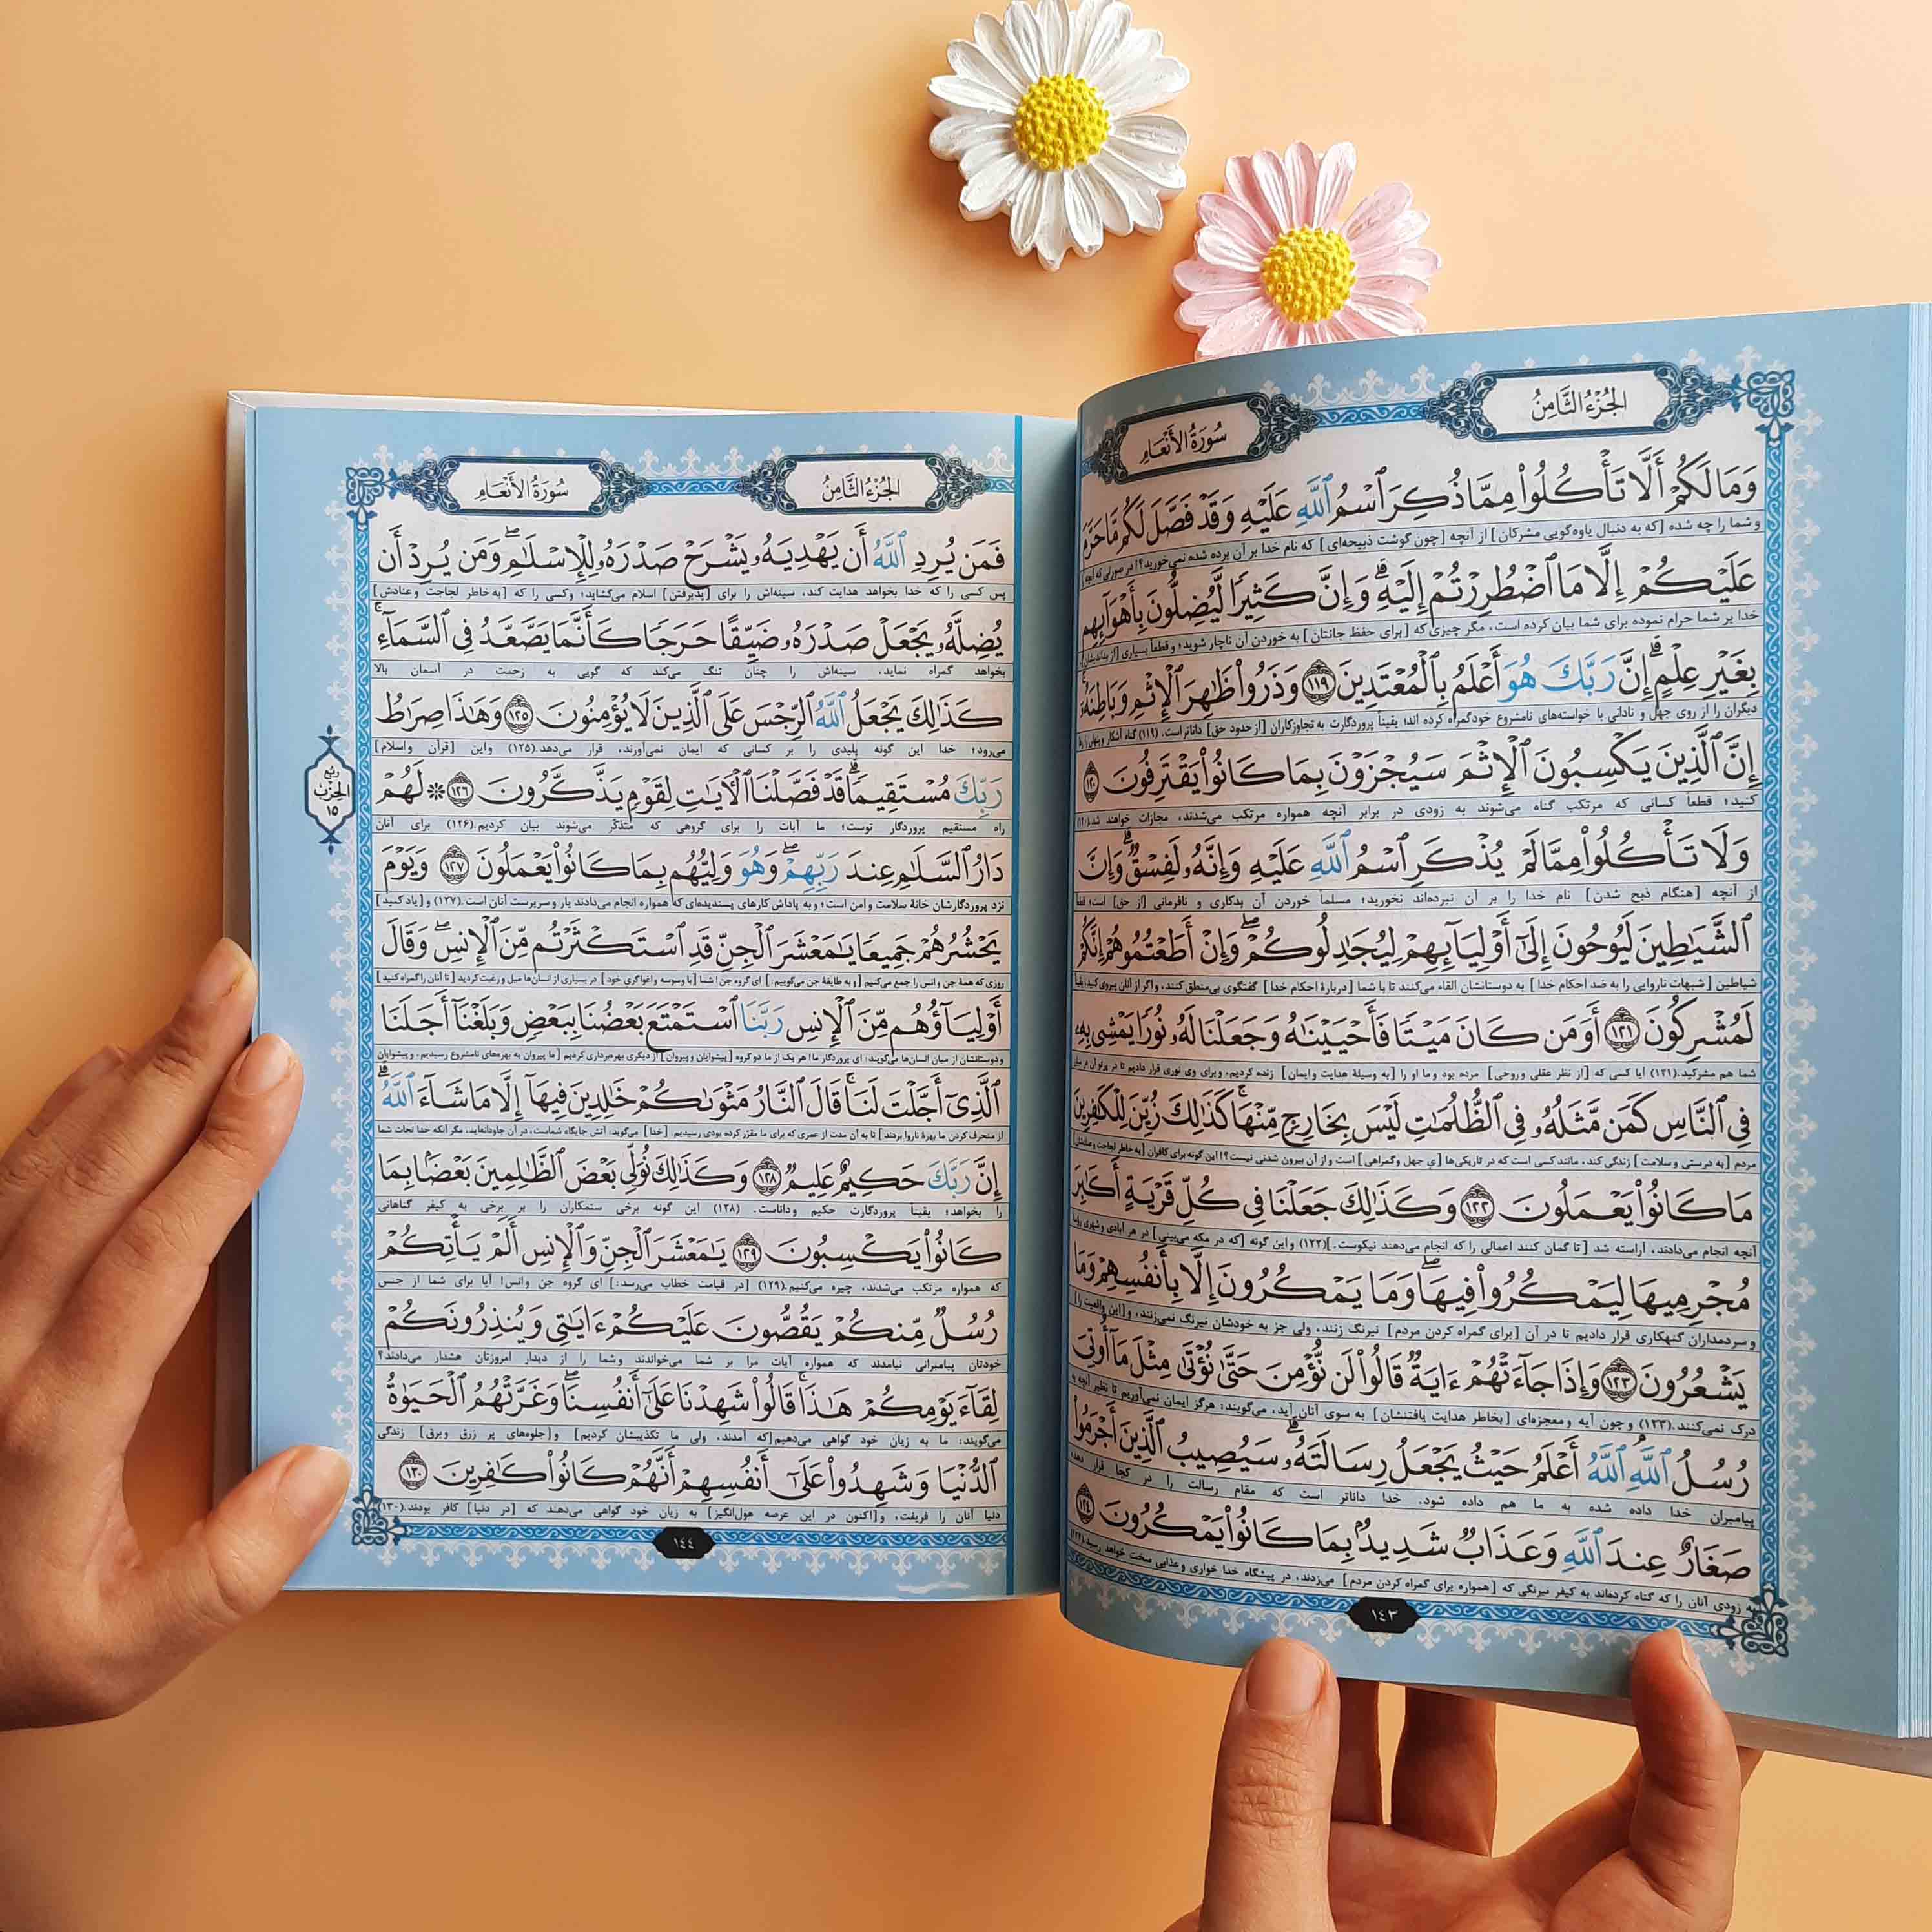 الجُزْءُ الثَّامِنُ
سُورَةُ الأَنْعَامِ
وَمَا لَكُمْ أَلَّا تَأْكُلُوا۟ مِمَّا ذُكِرَ ٱسْمُ ٱللَّهِ عَلَيْهِ وَقَدْ فَصَّلَ لَكُم مَّا حَرَّمَ
و شما را چه شده [که به دنبال یاوه‌گویی مشرکان] از آنچه [چون گوشت ذبیحه‌ای] که نام خدا بر آن برده شده نمی‌خورید؟! در صورتی که آنچه
عَلَيْكُمْ إِلَّا مَا ٱضْطُرِرْتُمْ إِلَيْهِ ۗ وَإِنَّ كَثِيرًا لَّيُضِلُّونَ بِأَهْوَآئِهِم
خدا بر شما حرام نموده برای شما بیان کرده است، مگر چیزی که [برای حفظ جانتان] به خوردن آن ناچار شوید؛ و قطعاً بسیاری [از بداندیشان]،
بِغَيْرِ عِلْمٍ ۗ إِنَّ رَبَّكَ هُوَ أَعْلَمُ بِٱلْمُعْتَدِينَ ١١٩ وَذَرُوا۟ ظَٰهِرَ ٱلْإِثْمِ وَبَاطِنَهُۥٓ
دیگران را از روی جهل و نادانی با خواسته‌های نامشروع خودگمراه کرده اند؛ یقیناً پروردگارت به تجاوزکاران [از حدود حق] داناتر است. (۱۱۹) گناه آشکار و پنهان را رها
إِنَّ ٱلَّذِينَ يَكْسِبُونَ ٱلْإِثْمَ سَيُجْزَوْنَ بِمَا كَانُوا۟ يَقْتَرِفُونَ ١٢٠
کنید؛ قطعاً کسانی که مرتکب گناه می‌شوند به زودی در برابر آنچه همواره مرتکب می‌شدند، مجازات خواهند شد.(۱۲۰)
وَلَا تَأْكُلُوا۟ مِمَّا لَمْ يُذْكَرِ ٱسْمُ ٱللَّهِ عَلَيْهِ وَإِنَّهُۥ لَفِسْقٌ ۗ وَإِنَّ
از آنچه [هنگام ذبح شدن] نام خدا را بر آن نبرده‌اند نخورید؛ مسلماً خوردن آن بدکاری و نافرمانی [از حق] است؛ قطعاً
ٱلشَّيَٰطِينَ لَيُوحُونَ إِلَىٰٓ أَوْلِيَآئِهِمْ لِيُجَٰدِلُوكُمْ ۖ وَإِنْ أَطَعْتُمُوهُمْ إِنَّكُمْ
شیاطین [شبهات ناروایی را به ضد احکام خدا] به دوستانشان القاء می‌کنند تا با شما [دربارهٔ احکام خدا] گفتگوی بی‌منطق کنند، و اگر از آنان پیروی کنید، یقیناً
لَمُشْرِكُونَ ١٢١ أَوَمَن كَانَ مَيْتًا فَأَحْيَيْنَٰهُ وَجَعَلْنَا لَهُۥ نُورًا يَمْشِى بِهِۦ
شما هم مشرکید. (۱۲۱) آیا کسی که [از نظر عقلی و روحی] مرده بود و ما او را [به وسیلهٔ هدایت و ایمان] زنده کردیم، و برای وی نوری قرار دادیم تا در پرتو آن در میان
فِى ٱلنَّاسِ كَمَن مَّثَلُهُۥ فِى ٱلظُّلُمَٰتِ لَيْسَ بِخَارِجٍ مِّنْهَا ۚ كَذَٰلِكَ زُيِّنَ لِلْكَٰفِرِينَ
مردم [به درستی و سلامت] زندگی کند، مانند کسی است که در تاریکی‌ها [ی جهل و گمراهی] است و از آن بیرون شدنی نیست؟! این گونه برای کافران [به خاطر لجاجت و عنادشان]
مَا كَانُوا۟ يَعْمَلُونَ ١٢٢ وَكَذَٰلِكَ جَعَلْنَا فِى كُلِّ قَرْيَةٍ أَكَٰبِرَ
آنچه انجام می‌دادند، آراسته شد [تا گمان کنند اعمالی را که انجام می‌دهند نیکوست.](۱۲۲) و این گونه [که در مکه می‌بینی] در هر آبادی و شهری رؤسا
مُجْرِمِيهَا لِيَمْكُرُوا۟ فِيهَا ۖ وَمَا يَمْكُرُونَ إِلَّا بِأَنفُسِهِمْ وَمَا
و سردمداران گنهکاری قرار دادیم تا در آن [برای گمراه کردن مردم] نیرنگ زنند، ولی جز به خودشان نیرنگ نمی‌زنند، و [این واقعیت را]
يَشْعُرُونَ ١٢٣ وَإِذَا جَآءَتْهُمْ ءَايَةٌ قَالُوا۟ لَن نُّؤْمِنَ حَتَّىٰ نُؤْتَىٰ مِثْلَ مَآ أُوتِىَ
درک نمی‌کنند.(۱۲۳) و چون آیه و معجزه‌ای [بخاطر هدایت یافتنشان] به سوی آنان آید، می‌گویند: هرگز ایمان نمی‌آوریم تا نظیر آنچه به
رُسُلُ ٱللَّهِ ۘ ٱللَّهُ أَعْلَمُ حَيْثُ يَجْعَلُ رِسَالَتَهُۥ ۗ سَيُصِيبُ ٱلَّذِينَ أَجْرَمُوا۟
پیامبران خدا داده شده به ما هم داده شود. خدا داناتر است که مقام رسالت را در کجا قرار دهد.
صَغَارٌ عِندَ ٱللَّهِ وَعَذَابٌ شَدِيدٌۢ بِمَا كَانُوا۟ يَمْكُرُونَ ١٢٤
به زودی آنان را که گناه کرده‌اند به کیفر نیرنگی که [همواره برای گمراه کردن مردم] می‌زدند، در پیشگاه خدا خواری و عذابی سخت خواهد رسید.(۱۲۴)
١٤٣
الجُزْءُ الثَّامِنُ
سُورَةُ الأَنْعَامِ
فَمَن يُرِدِ ٱللَّهُ أَن يَهْدِيَهُۥ يَشْرَحْ صَدْرَهُۥ لِلْإِسْلَٰمِ ۖ وَمَن يُرِدْ أَن
پس کسی را که خدا بخواهد هدایت کند، سینه‌اش را برای [پذیرفتن] اسلام می‌گشاید؛ و کسی را که [به خاطر لجاجت و عنادش]
يُضِلَّهُۥ يَجْعَلْ صَدْرَهُۥ ضَيِّقًا حَرَجًا كَأَنَّمَا يَصَّعَّدُ فِى ٱلسَّمَآءِ ۚ
بخواهد گمراه نماید، سینه‌اش را چنان تنگ می‌کند که گویی به زحمت در آسمان بالا
كَذَٰلِكَ يَجْعَلُ ٱللَّهُ ٱلرِّجْسَ عَلَى ٱلَّذِينَ لَا يُؤْمِنُونَ ١٢٥ وَهَٰذَا صِرَٰطُ
می‌رود؛ خدا این گونه پلیدی را بر کسانی که ایمان نمی‌آورند، قرار می‌دهد.(۱۲۵) و این [قرآن و اسلام]
رَبِّكَ مُسْتَقِيمًا ۗ قَدْ فَصَّلْنَا ٱلْءَايَٰتِ لِقَوْمٍ يَذَّكَّرُونَ ١٢٦ ۞ لَهُمْ
راه مستقیم پروردگار توست؛ ما آیات را برای گروهی که متذکّر می‌شوند بیان کردیم.(۱۲۶) برای آنان
رُبع
الحِزب
١٥
دَارُ ٱلسَّلَٰمِ عِندَ رَبِّهِمْ ۖ وَهُوَ وَلِيُّهُم بِمَا كَانُوا۟ يَعْمَلُونَ ١٢٧ وَيَوْمَ
نزد پروردگارشان خانهٔ سلامت و امن است؛ و به پاداش کارهای پسندیده‌ای که همواره انجام می‌دادند یار و سرپرست آنان است.(۱۲۷) و [یاد کنید]
يَحْشُرُهُمْ جَمِيعًا يَٰمَعْشَرَ ٱلْجِنِّ قَدِ ٱسْتَكْثَرْتُم مِّنَ ٱلْإِنسِ ۖ وَقَالَ
روزی که همهٔ جن و انس را جمع می‌کنیم [و به طایفهٔ جن می‌گوییم:] ای گروه جن! شما [با وسوسه و اغواگری خود] در بسیاری از انسان‌ها میل و رغبت کردید [تا آنان را گمراه کنید]
أَوْلِيَآؤُهُم مِّنَ ٱلْإِنسِ رَبَّنَا ٱسْتَمْتَعَ بَعْضُنَا بِبَعْضٍ وَبَلَغْنَآ أَجَلَنَا
و دوستانشان از میان انسان‌ها می‌گویند: ای پروردگار ما! هر یک از ما دو گروه [پیشوایان و پیروان] از دیگری بهره‌برداری کردیم [ما پیروان به بهره‌های نامشروع رسیدیم، و پیشوایان
ٱلَّذِىٓ أَجَّلْتَ لَنَا ۚ قَالَ ٱلنَّارُ مَثْوَىٰكُمْ خَٰلِدِينَ فِيهَآ إِلَّا مَا شَآءَ ٱللَّهُ ۗ
از منحرف کردن ما بهرهٔ ناروا بردند] تا به آن مدت از عمری که برای ما مقرّر کرده بودی رسیدیم. [خدا] می‌گوید: آتش جایگاه شماست، در آن جاودانه‌اید، مگر آنکه خدا نجات شما
إِنَّ رَبَّكَ حَكِيمٌ عَلِيمٌ ١٢٨ وَكَذَٰلِكَ نُوَلِّى بَعْضَ ٱلظَّٰلِمِينَ بَعْضًۢا بِمَا
را بخواهد؛ یقیناً پروردگارت حکیم و داناست. (۱۲۸) این گونه برخی ستمکاران را بر برخی به کیفر گناهانی
كَانُوا۟ يَكْسِبُونَ ١٢٩ يَٰمَعْشَرَ ٱلْجِنِّ وَٱلْإِنسِ أَلَمْ يَأْتِكُمْ
که همواره مرتکب می‌شدند، چیره می‌کنیم.(۱۲۹) [در قیامت خطاب می‌رسد:] ای گروه جن و انس! آیا برای شما از جنس
رُسُلٌ مِّنكُمْ يَقُصُّونَ عَلَيْكُمْ ءَايَٰتِى وَيُنذِرُونَكُمْ
خودتان پیامبرانی نیامدند که همواره آیات مرا بر شما می‌خواندند و شما را از دیدار امروزتان هشدار می‌دادند؟
لِقَآءَ يَوْمِكُمْ هَٰذَا ۚ قَالُوا۟ شَهِدْنَا عَلَىٰٓ أَنفُسِنَا ۖ وَغَرَّتْهُمُ ٱلْحَيَوٰةُ
می‌گویند: ما به زیان خود گواهی می‌دهیم[که آمدند، ولی ما تکذیبشان کردیم] و [جلوه‌های پر زرق و برق] زندگی
ٱلدُّنْيَا وَشَهِدُوا۟ عَلَىٰٓ أَنفُسِهِمْ أَنَّهُمْ كَانُوا۟ كَٰفِرِينَ ١٣٠
دنیا آنان را فریفت، و[اکنون در این عرصه هول‌انگیز] به زیان خود گواهی می‌دهند که [در دنیا] کافر بودند.(۱۳۰)
١٤٤